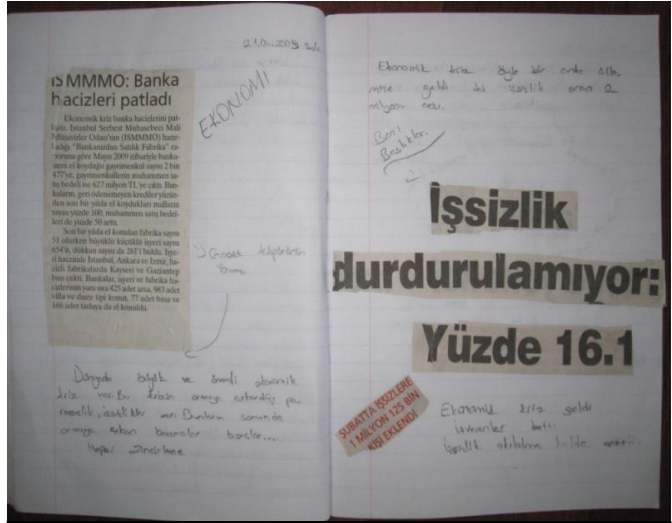 EKONOMİ
İSMMMO: Banka
hacizleri patladı
Ekonomik kriz banka hacizlerini pat-
lattı. İstanbul Serbest Muhasebeci Mali
Müşavirler Odası'nın (İSMMMO) hazır-
ladığı "Bankanızdan Satılık Fabrika" ra-
poruna göre Mayıs 2009 itibariyle banka-
ların el koyduğu gayrimenkul sayısı 2 bin
477'ye, gayrimenkullerin muhammen sa-
tış bedeli ise 627 milyon TL'ye çıktı. Ban-
kaların, geri ödenemeyen krediler yüzün-
den son bir yılda el koydukları malların
sayısı yüzde 100, muhammen satış bedel-
leri de yüzde 50 arttı.
Son bir yılda el konulan fabrika sayısı
51 olurken büyüklü küçüklü işyeri sayısı
654'ü, dükkan sayısı da 261'i buldu. İşye-
ri haczinde İstanbul, Ankara ve İzmir, ha-
cizli fabrikalarda Kayseri ve Gaziantep
başı çekti. Bankalar, işyeri ve fabrika ha-
cizlerinin yanı sıra 425 adet arsa, 983 adet
villa ve daire tipi konut, 77 adet bina ve
166 adet tarlaya da el konuldu.
Dünyada büyük ve önemli ekonomik
kriz var. Bu krizin ortaya
var. Bunların sonunda
ortaya çıkan borçlar...
Ekonomik kriz öyle bir anda
geldi ki işsizlik oranı 2
milyonu
Bazı
Başlıklar
İşsizlik
durdurulamıyor:
Yüzde 16.1
ŞUBATTA İŞSİZLERE
1 MİLYON 125 BİN
KİŞİ EKLENDİ
Ekonomik kriz geldi
işverenler battı
işsizlik halde